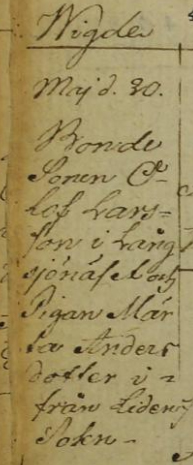 Wigde
Maj d. 20.
Bonde
Sonen O-
lof Lars-
son i Lång
sjönäset och
Pigan Mär
ta Anders
dotter i-
från Lidens
Sokn -